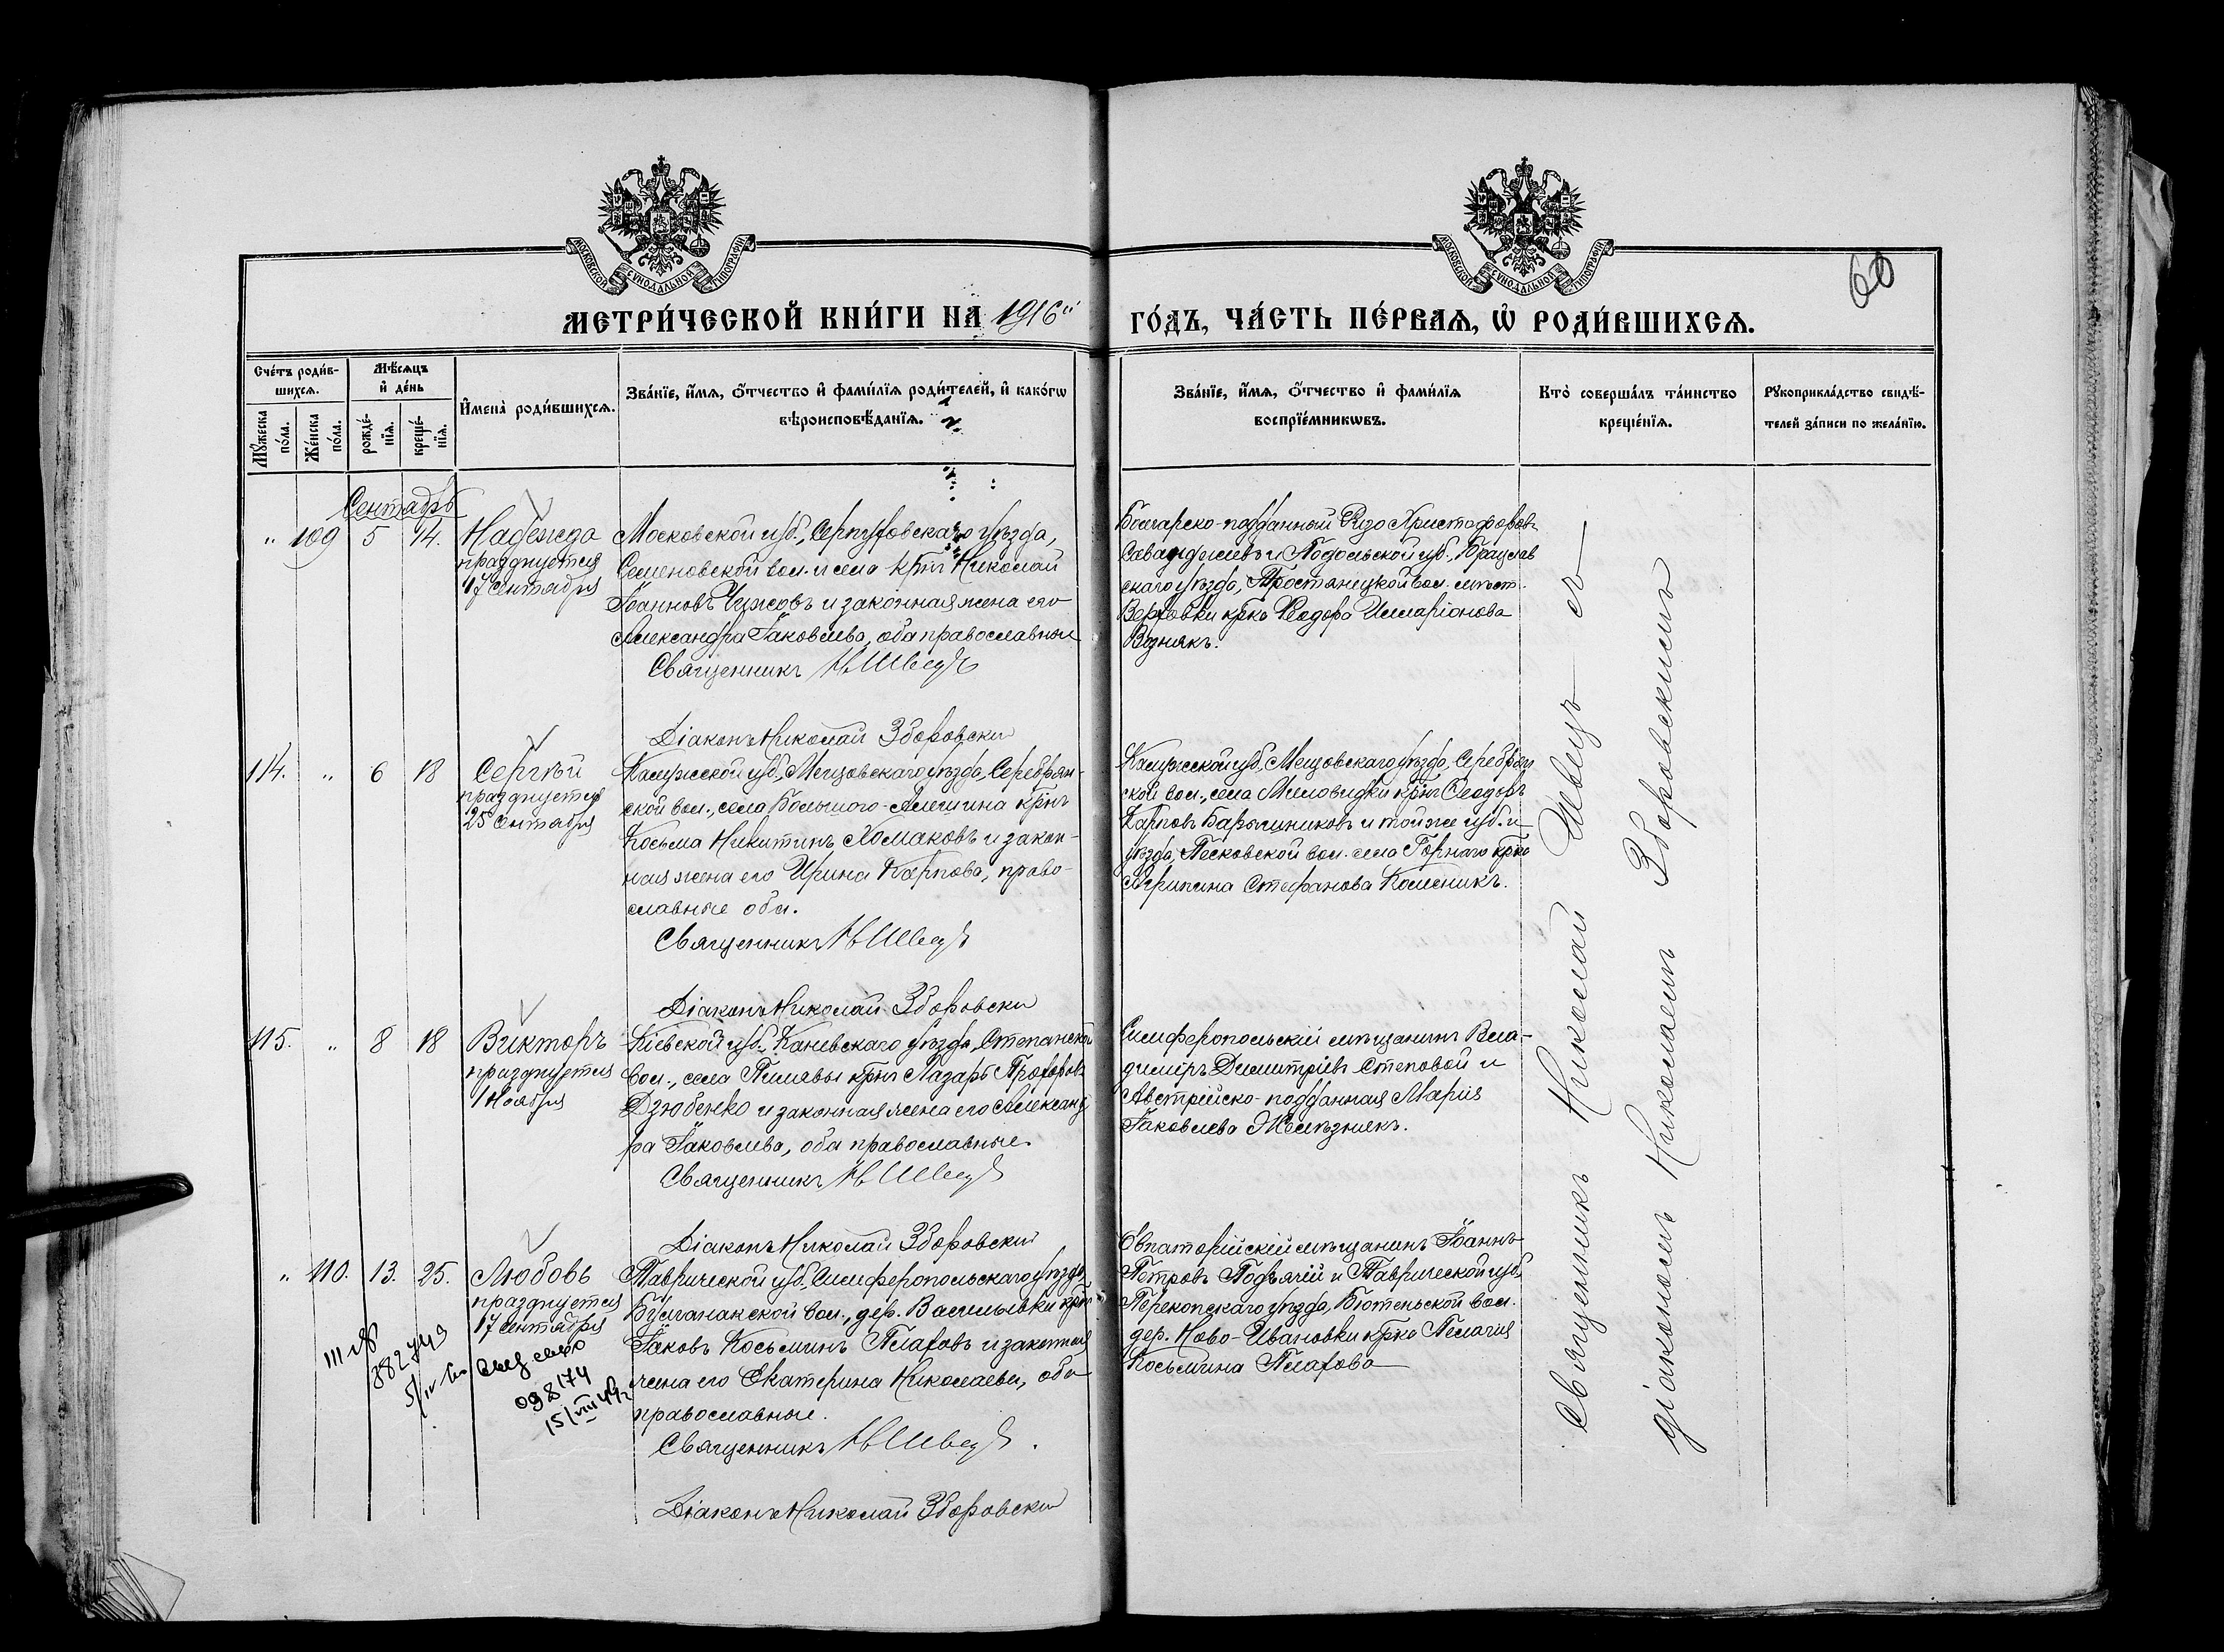 60
МОСКОВСКОЙ СѴНОДАЛЬНОЙ ТИПОГРАФІИ
МОСКОВСКОЙ СѴНОДАЛЬНОЙ ТИПОГРАФІИ
МЕТРИ́ЧЕСКОЙ КНИ́ГИ НА 1916й
ГО́ДЪ, ЧА́СТЬ ПЕ́РВАЯ, Ѽ РОДИ́ВШИХСЯ.
Сче́тъ роди́в-
шихся.
Мꙋ́жеска по́ла.
Же́нска по́ла.
Мѣ́сяцъ
и҆ де́нь
рожде́-нїя.
креще́-нїя.
И҆мена̀ роди́вшихся.
Зва́нїе, и҆́мя, ѻ҆́тчество и҆ фами́лїя роди́телей, и҆ како́гѡ
вѣроисповѣ́данїя.
Зва́нїе, и҆́мя, ѻ҆́тчество и҆ фами́лїя
воспрїе́мникѡвъ.
Кто̀ соверша́лъ та́инство
креще́нїя.
Рꙋкоприкла́дство свидѣ́-
телей за́писи по жела́нїю.
Сентябрь
" 109 5 14.
Надежда
празднуется
17 сентября
Московской губ., Серпуховскаго уѣзда,
Семеновской вол. и села кр̃нъ Николай
Іоанновъ Чижовъ и законная жена его
Александра Іаковлева, оба православные
Священникъ Н Швецъ
Діаконъ Николай Зборовски
Болгарско-подданный Ризо Христофоровъ
и Подольской губ., Брацлав
скаго уѣзда, Тростянецкой вол. мѣст.
Верховки кр̃ка Ѳеодора Илларіонова
Вознякъ.
114. " 6 18
Сергѣй
празднуется
25 сентября
Калужской губ., Мещовскаго уѣзда, Серебрян-
ской вол., села Большого-Алешина кр̃нъ
Косьма Никитинъ Хомаковъ и закон-
ная жена его Ирина Карпова, право-
славные оба.
Священникъ Н Швецъ
Діаконъ Николай Зборовски
Калужской губ., Мещовскаго уѣзда, Серебрян
ской вол., села Миловидки кр̃нъ Ѳеодоръ
Карповъ Барышниковъ и той же губ. и
уѣзда, Песковской вол. села Горнаго кр̃ка
Агрипина Стефанова Коленикъ.
115. " 8 18
Викторъ
празднуется
1 Ноября
Кіевской губ., Каневскаго уѣзда, Степанской
вол., села Пилявы кр̃нъ Лазарь Прохоровъ
Дзюбенко и законная жена его Александ
ра Іаковлева, оба православные.
Священникъ Н Швецъ
Діаконъ Николай Зборовски
Симферопольскій мѣщанинъ Вла-
димиръ Димитріевъ Степовой и
Австрійско-подданная Марія
Іаковлева Желѣзнякъ.
" 110. 13. 25.
Любовь
празднуется
17 сентября
Таврической губ., Симферопольскаго уѣзда,
Булганакской вол., дер. Васильевки кр̃нъ
Іаковъ Косьминъ Плаховъ и законная
жена его Екатерина Николаева, оба
православные.
Священникъ Н Швецъ.
Діаконъ Николай Зборовски
Евпаторійскій мѣщанинъ Іоаннъ
Петровъ Подъячій и Таврической губ.,
Перекопскаго уѣзда, Бютеньской вол.
дер. Ново-Ивановки кр̃ка Пелагія
Косьмина Плахова
098174
15/VIII 49г
Священникъ Николай Швецъ съ
діакономъ Николаемъ Зборовскимъ